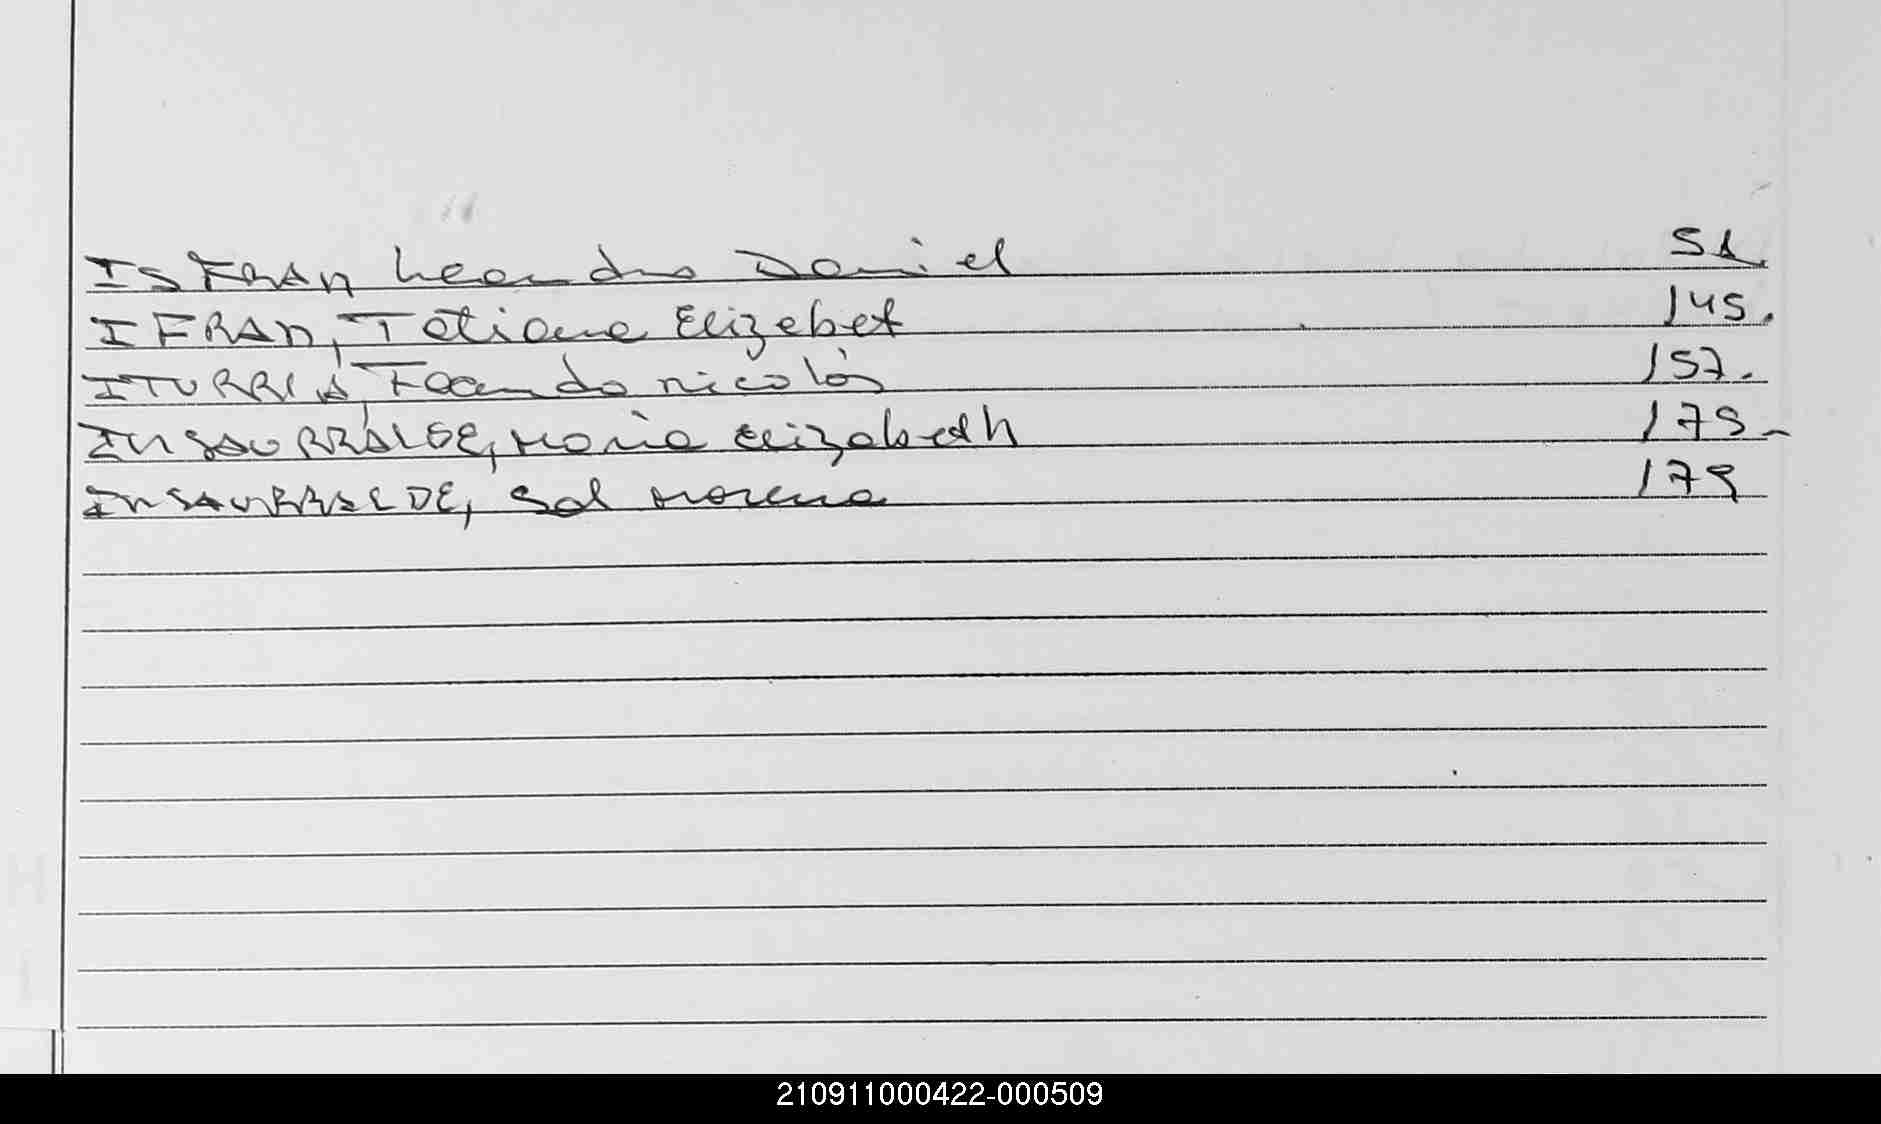 ISFRAN Leandro Daniel 51.
IFRAN, Tatiana Elizabet 145.
ITURRIA, Facundo nicolás 157.
INSAURRALDE, Maria Elizabeth 175-
INSAURRALDE, Sol Morena 179
210911000422-000509